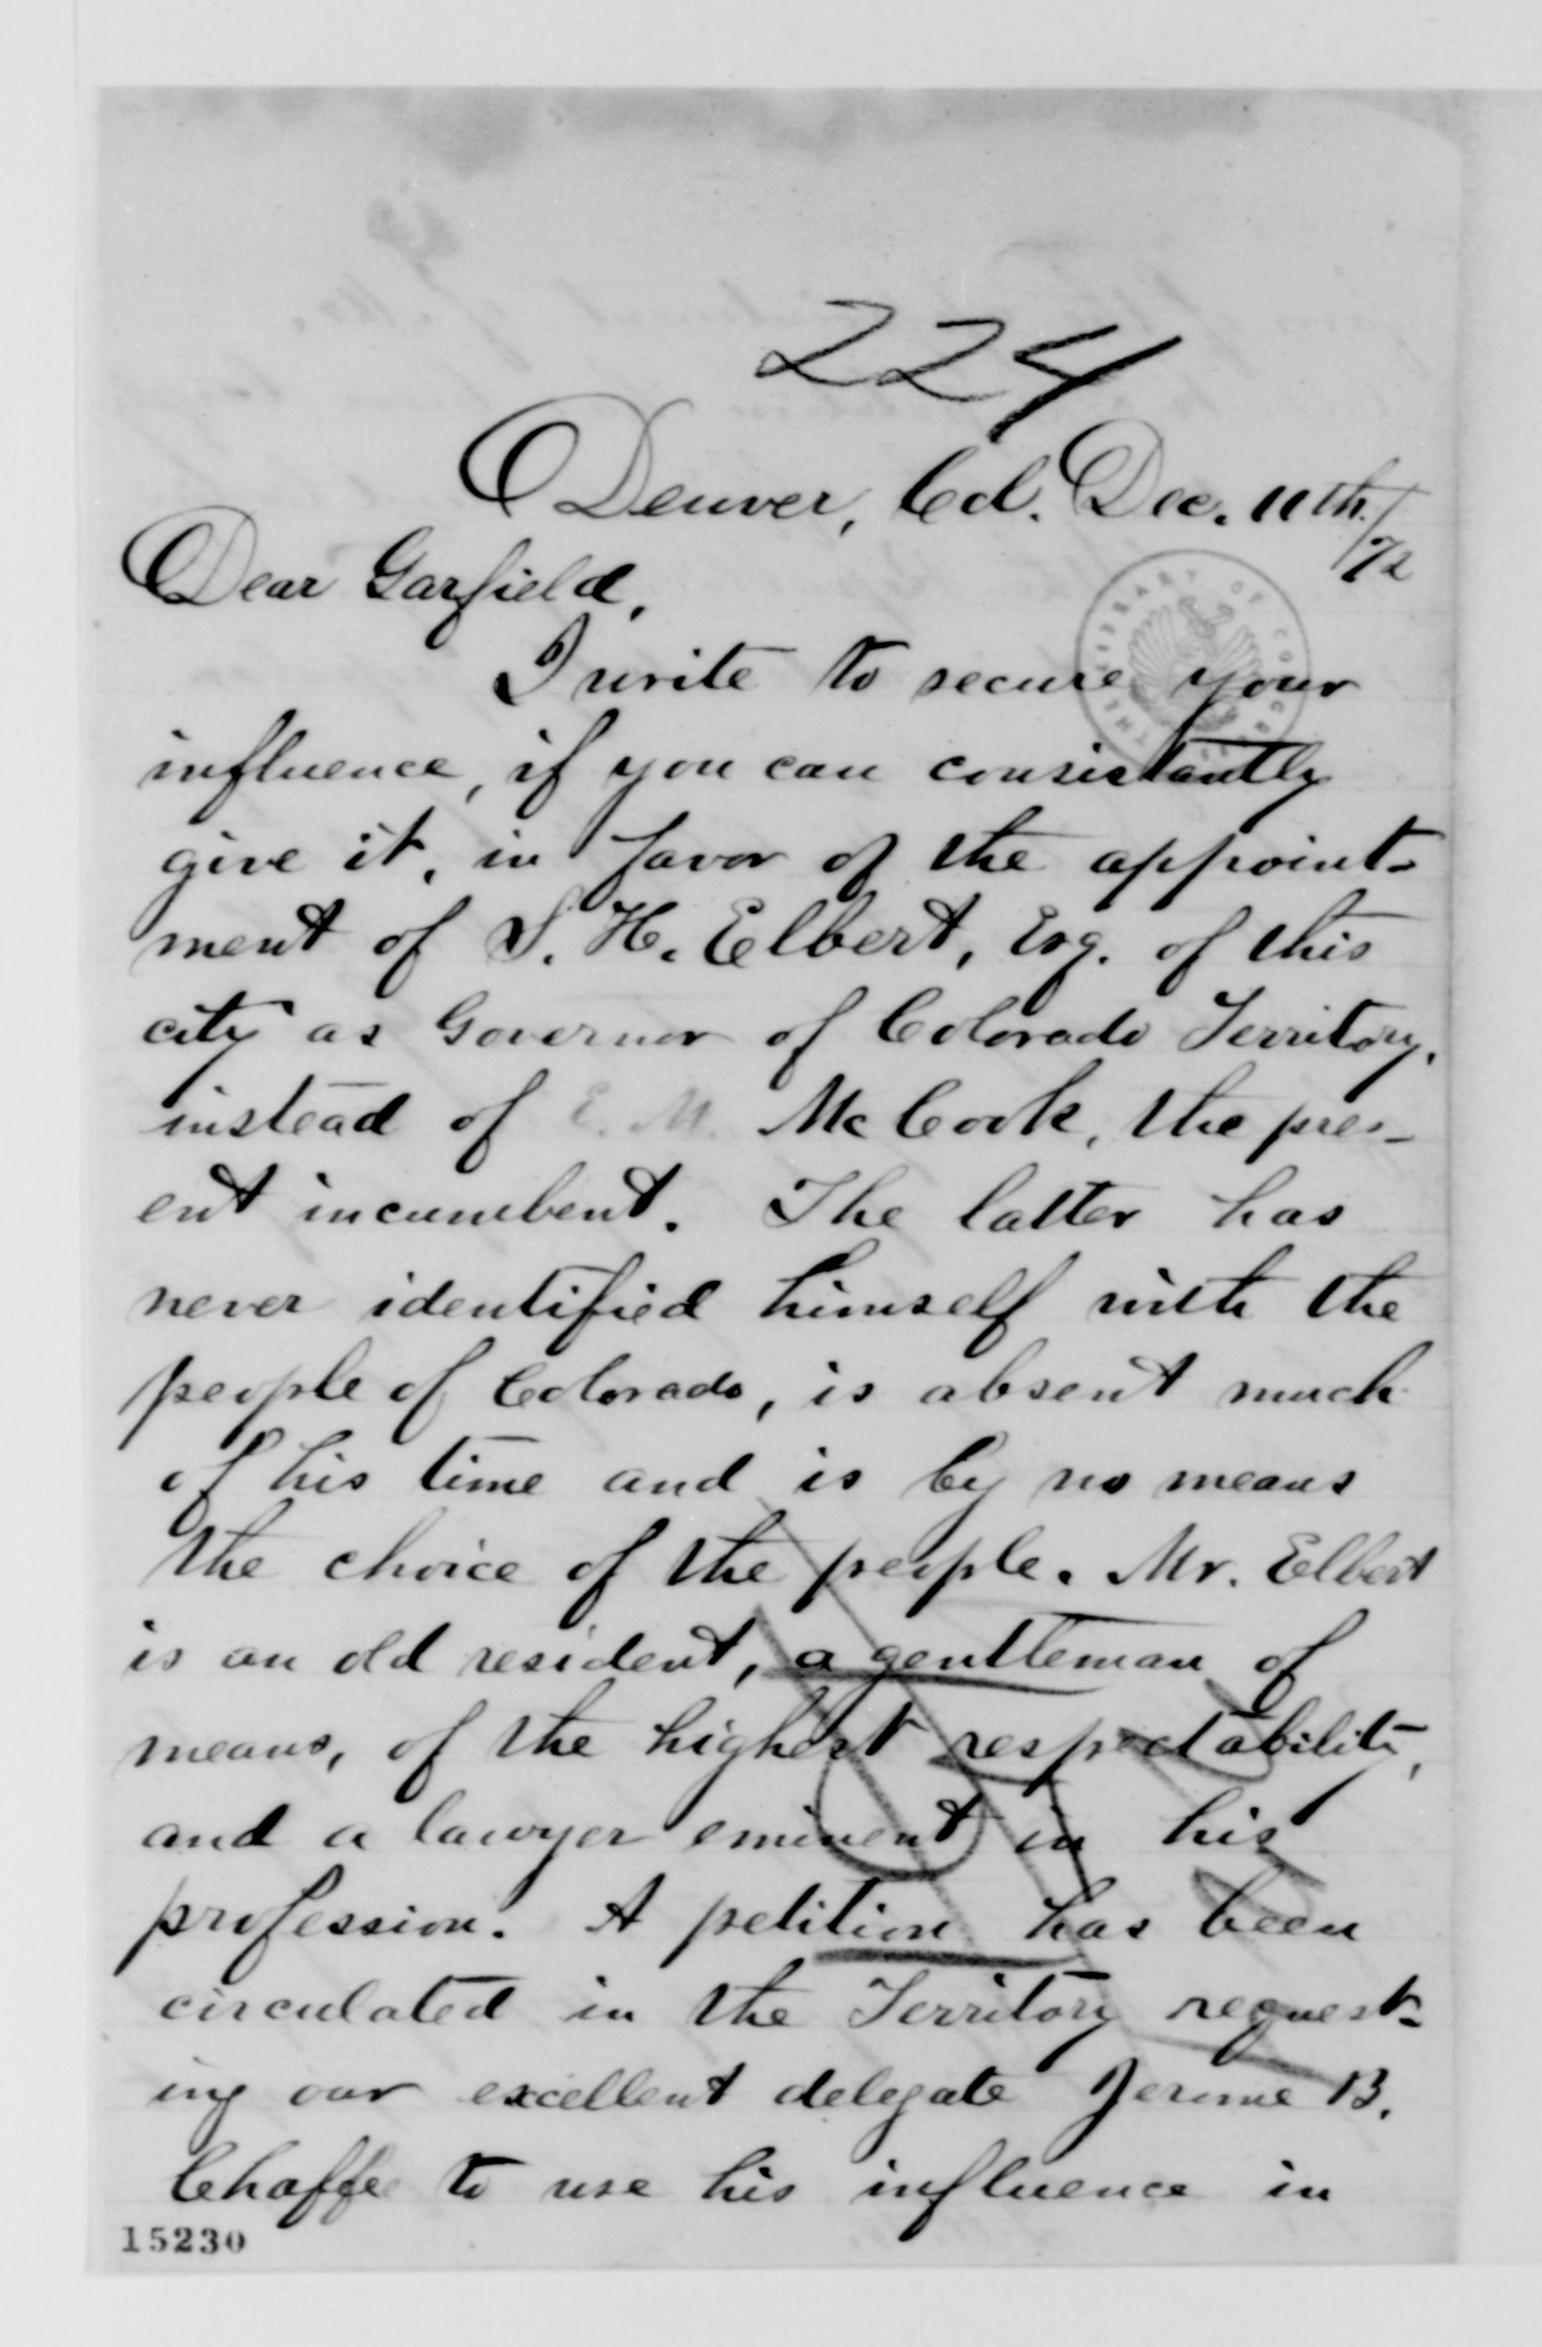 224
Denver, Col. Dec. 11th/72
Dear Garfield,
I write to secure your
influence, if you can consistantly
give it, in favor of the appoint-
ment of S. H. Elbert, Esq. of this
city as Governor of Colorado Territory,
instead of E. M. McCook, the pres-
ent incumbent. The latter has
never identified himself with the
people of Colorado, is absent much
of his time and is by no means
the choice of the people. Mr. Elbert
is an old resident, a gentleman of
means, of the highest respectability,
and a lawyer eminent in his
profession. A petition has been
circulated in the Territory request-
ing our excellent delegate Jerome B.
Chaffe to use his influence in
15230
THE LIBRARY OF CONGRESS